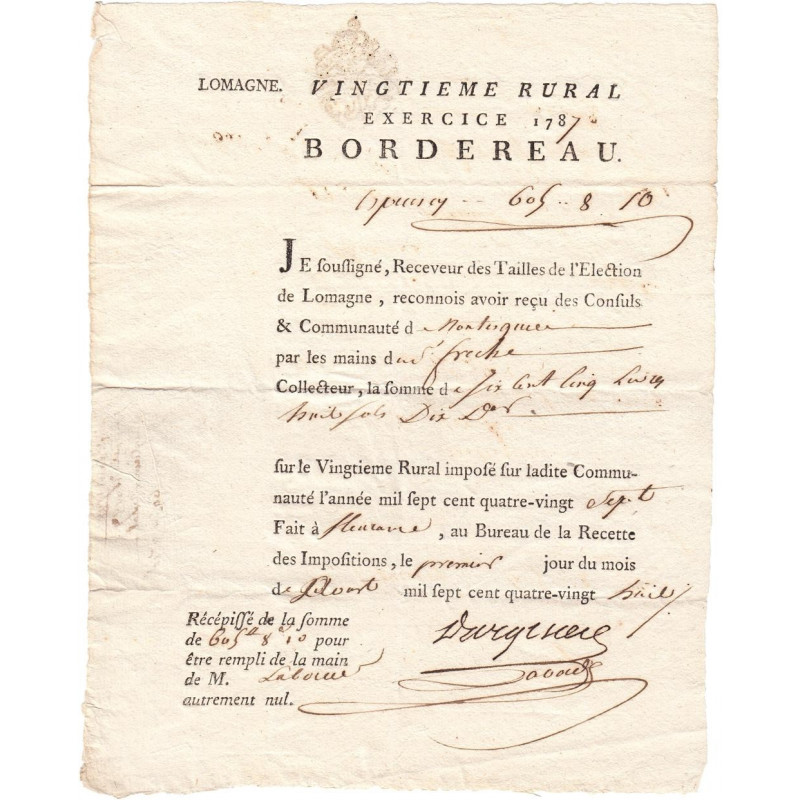 LOMAGNE. VINGTIEME RURAL
EXERCICE 1787
BORDEREAU.
605 .. 8 10
JE soussigné, Receveur des Tailles de l'Election
de Lomagne, reconnois avoir reçu des Consuls
& Communauté de Montesquieu
par les mains du Sr freche
Collecteur, la somme de Six Cent Cinq Livres
huit sols Dix Drs
sur le Vingtieme Rural imposé sur ladite Commu-
nauté l'année mil sept cent quatre-vingt Sept
Fait à fleurance, au Bureau de la Recette
des Impositions, le premier jour du mois
de mil sept cent quatre-vingt huit
Récépissé de la somme
de 605 8 10 pour
être rempli de la main
de M.
autrement nul.